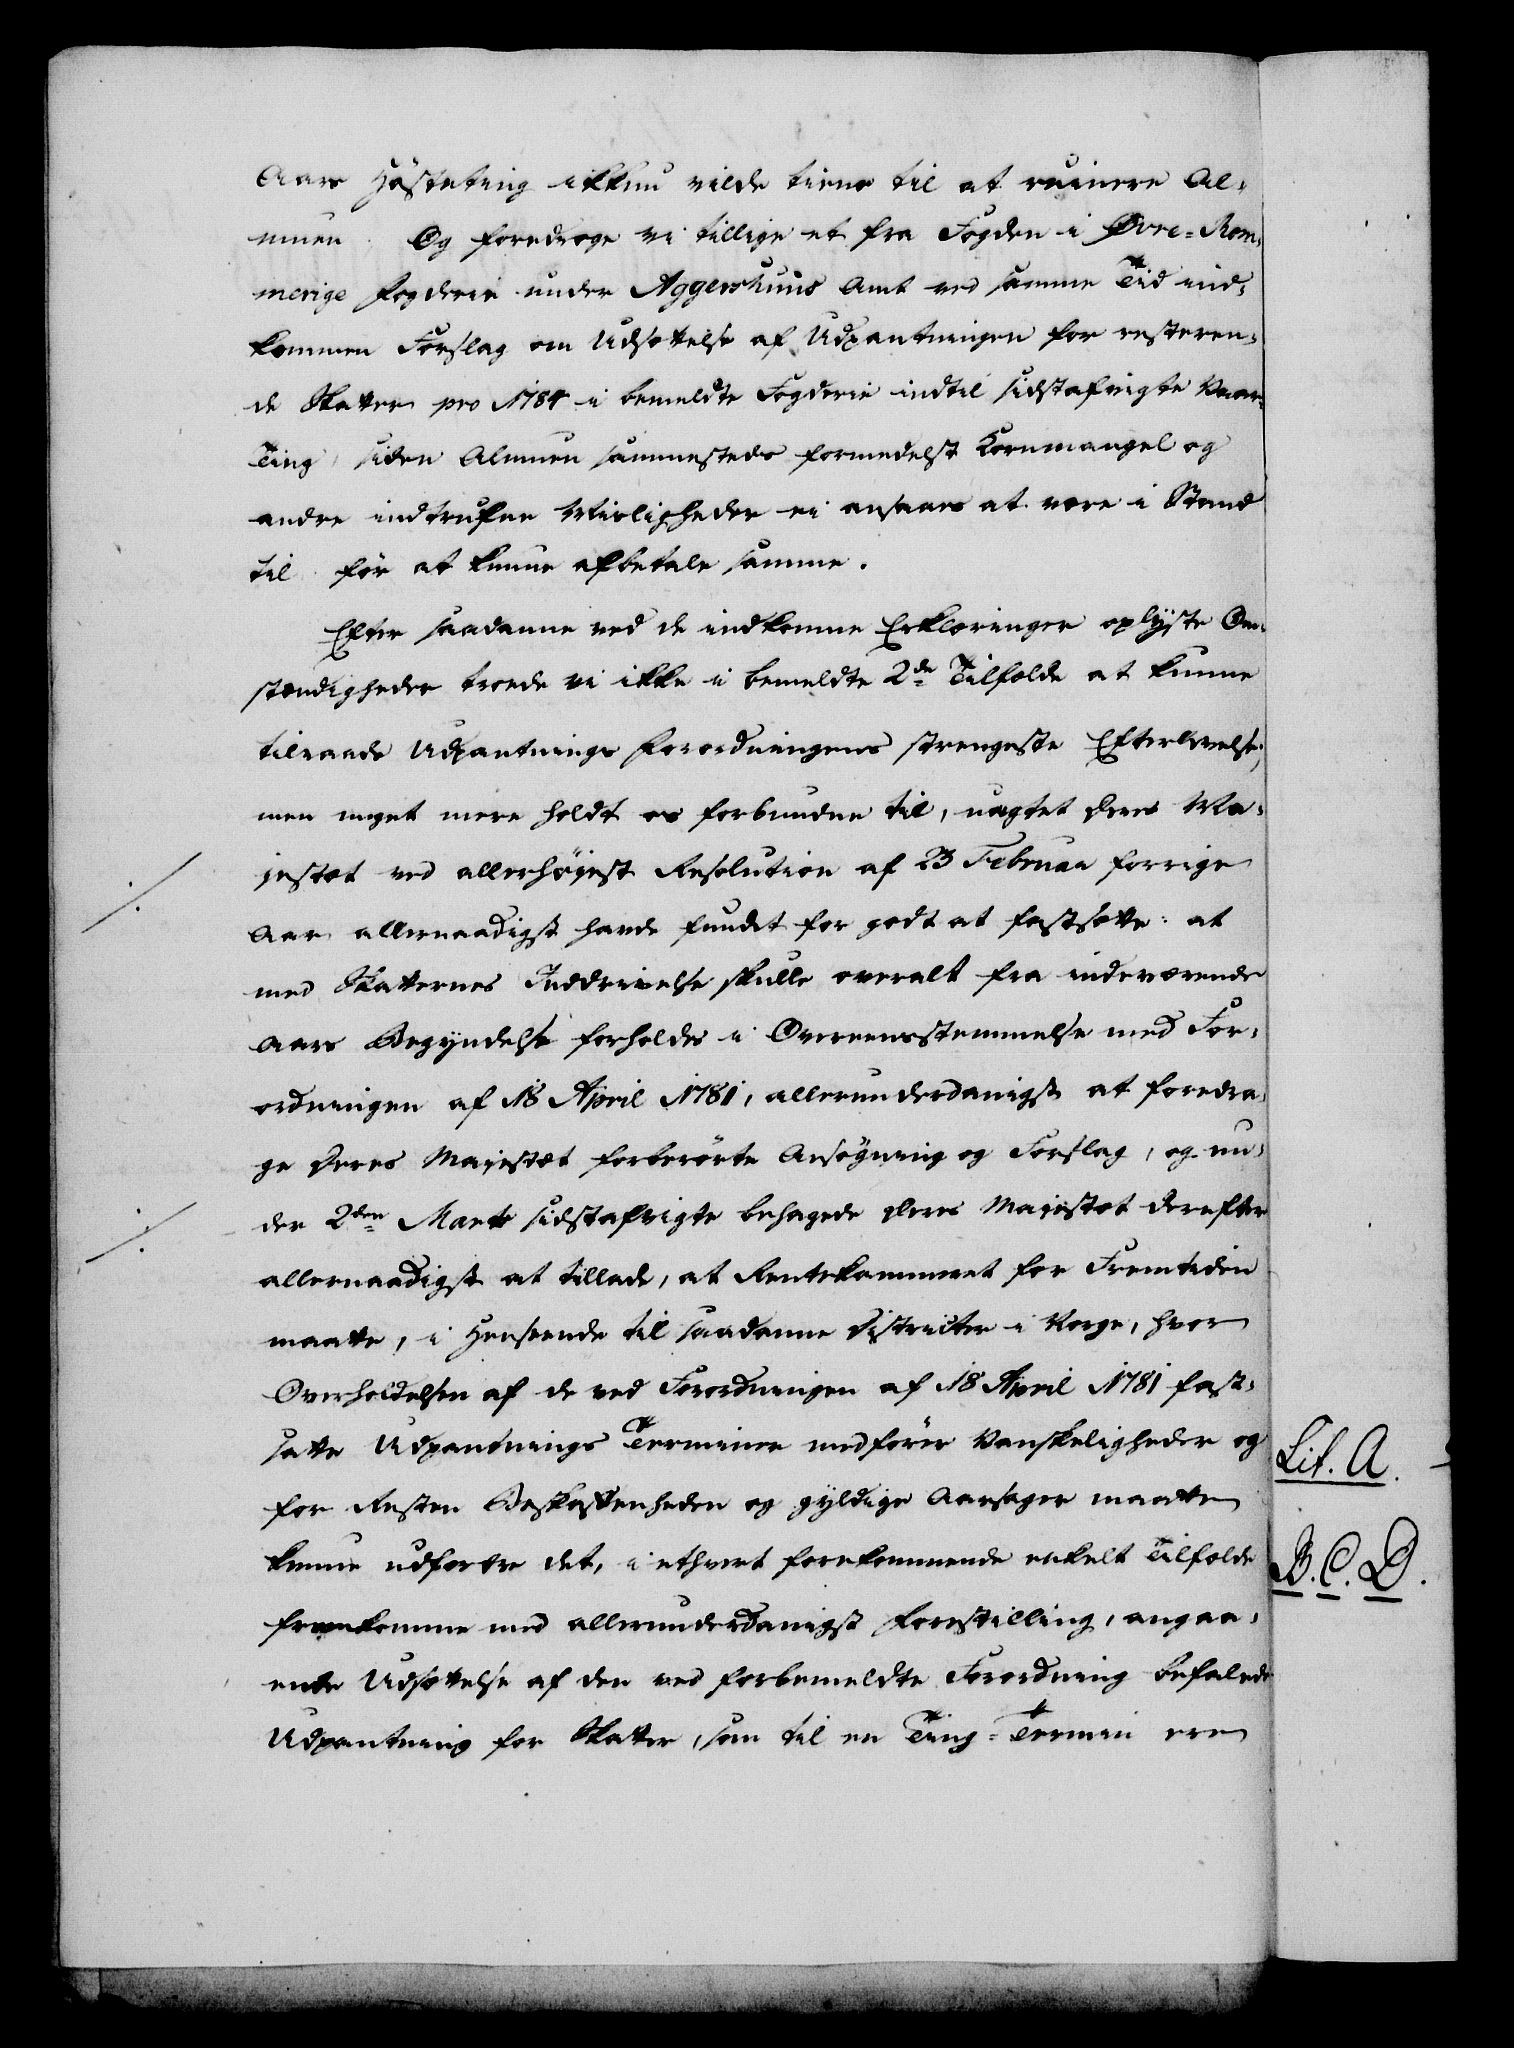 Aars Høsteting ikkun vilde tiene til at ruinere Al-
muen. Og foredroge vi tillige et fra Fogden i Øvre-Rom-
merige Fogderie under Aggershuus Amt ved samme Tid ind-
kommen Forslag om Udsættelse af Udpantningen for resteren-
de Skatter pro 1784 i bemeldte Fogderie indtil sidstafvigte Vaar-
Ting, siden Almuen sammesteds formedelst Kornmangel og
andre indtrufne Misligheder ei ansaaes at være i Stand
til før at kunne afbetale samme.
Efter saadanne ved de indkomne Erklæringer oplyste Om-
stændigheder troede vi ikke i bemeldte 2de Tilfælde at kunne
tilraade Udpantnings Forordningens strengeste Efterlevelse,
men meget mere holdt os forbundne til, uagtet Deres Ma-
jestæt ved allerhøjest Resolution af 23 Februar forrige
Aar allernaadigst havde fundet for godt at fastsætte: at
med Skatternes Inddrivelse skulle overalt fra indeværende
Aars Begyndelse forholdes i Overeensstemmelse med For-
ordningen af 18 April 1781, allerunderdanigst at foredra-
ge Deres Majestæt forberørte Ansøgning og Forslag, og un-
der 2den Martii sidstafvigte behagede Deres Majestæt derefter
allernaadigst at tillade, at Rentekammeret for Fremtiden
maatte, i Henseende til saadanne Districter i Norge, hvor
Overholdelsen af de ved Forordningen af 18 April 1781 fast-
satte Udpantnings Terminer medfører Vanskeligheder og
for Resten Beskaffenheden og gyldige Aarsager maatte
kunne udfordre det, i ethvert forekommende enkelt Tilfælde
fremkomme med allerunderdanigst Forestilling, angaa-
ende Udsættelse af den ved forbemeldte Forordning befalede
Udpantning for Skatter, som til en Ting-Termin ere
Lit. A.
B. C. D.